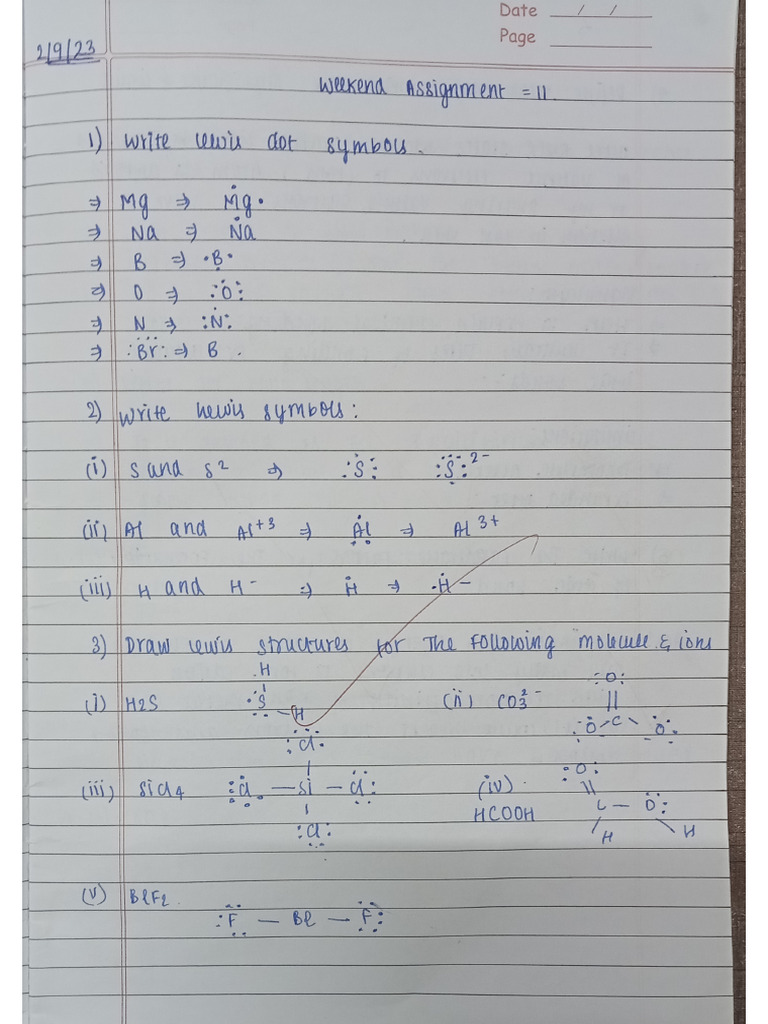 Date / /
Page
2/9/23
Weekend Assignment = 11.
1) Write lewis dot symbols.
⇒ Mg ⇒ Mg
⇒ Na ⇒ Na
⇒ B ⇒ B
⇒ O ⇒ O
⇒ N ⇒ N
⇒ Br ⇒ B
2) Write Lewis symbols:
(i) S and S² ⇒ S S²⁻
(ii) Al and Al⁺³ ⇒ Al ⇒ Al³⁺
(iii) H and H⁻ ⇒ H ⇒ H⁻
3) Draw lewis structures for The Following molecule & ions
(i) H2S H S — H
(ii) CO₃²⁻ O O C O
(iii) SiCl4 Cl Cl — Si — Cl Cl
(iv) HCOOH O C — O H H
(v) BeF2. F — Be — F